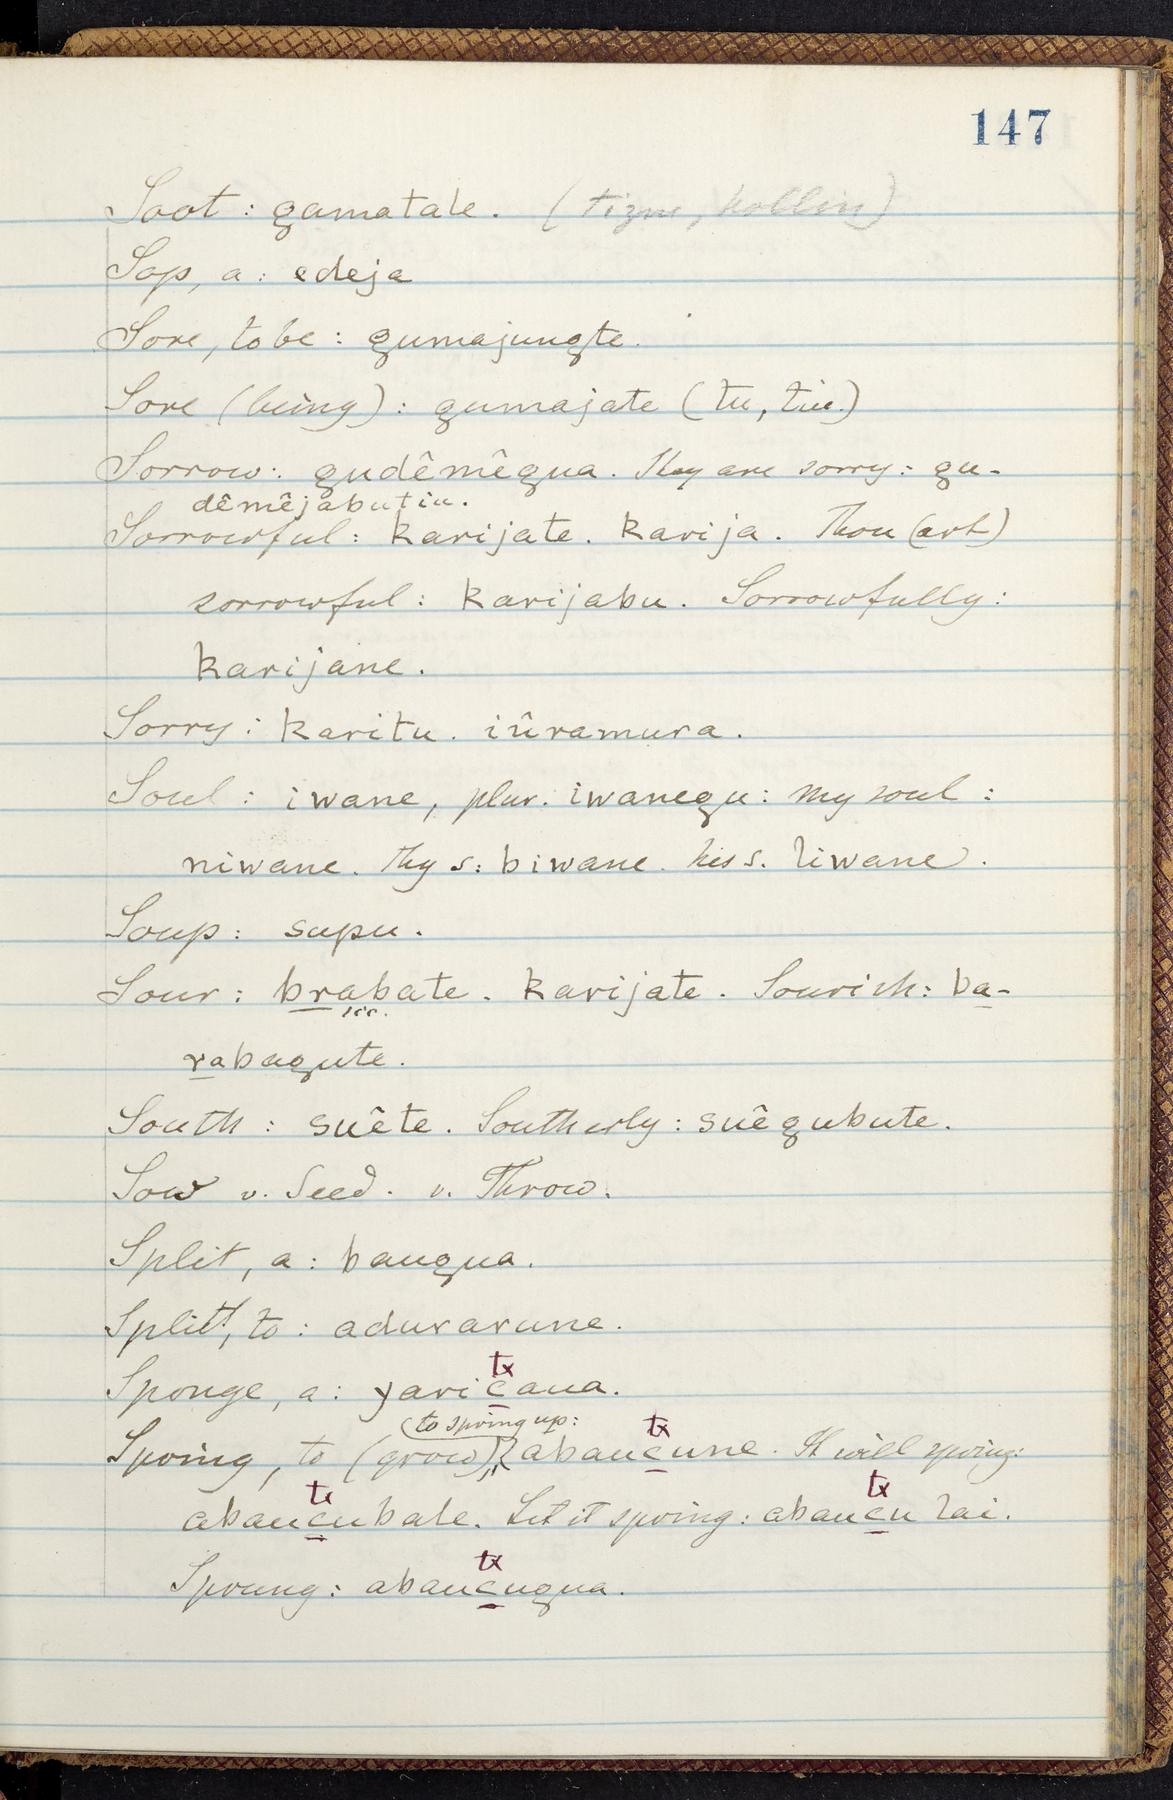 147
Soot : gamatale. (tizne, hollin)
Sop, a : edeja
Sore, to be : gumajungte.
Sore (being) : gumajate (tu, tiu.)
Sorrow : gudêmêgua. They are sorry : gu-
dêmêjabutiu.
Sorrowful : karijate. karija. Thou (art)
sorrowful : karijabu. Sorrowfully :
karijane.
Sorry : karitu. iûramura.
Soul : iwane, plur. iwanegu : my soul :
niwane. Thy s : biwane. his s. liwane.
Soup : supu.
Sour : brabate. karijate. Sourish : ba-
rabagute.
South : suête. Southerly : suêgubute.
Sow v. Seed. v. Throw.
Split, a : baugua.
Split, to : adurarune.
tx
Sponge, a : yaricaua.
(to spring up: tx
Spring, to (grow) abaucune. It will spring:
tx tx
abaucubale. Let it spring : abaucu lai.
tx
Sprung : abaucugua.